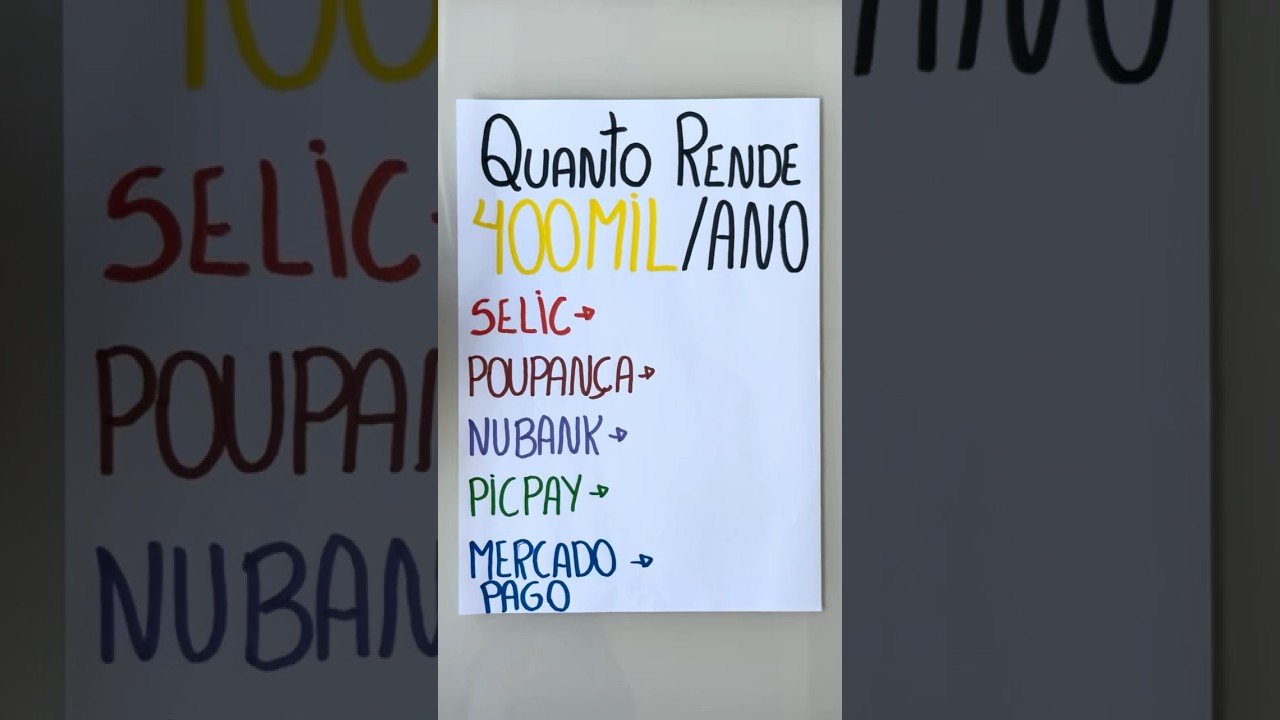 Quanto Rende
400Mil/Ano
Selic→
Poupança→
Nubank→
Picpay→
Mercado→
Pago